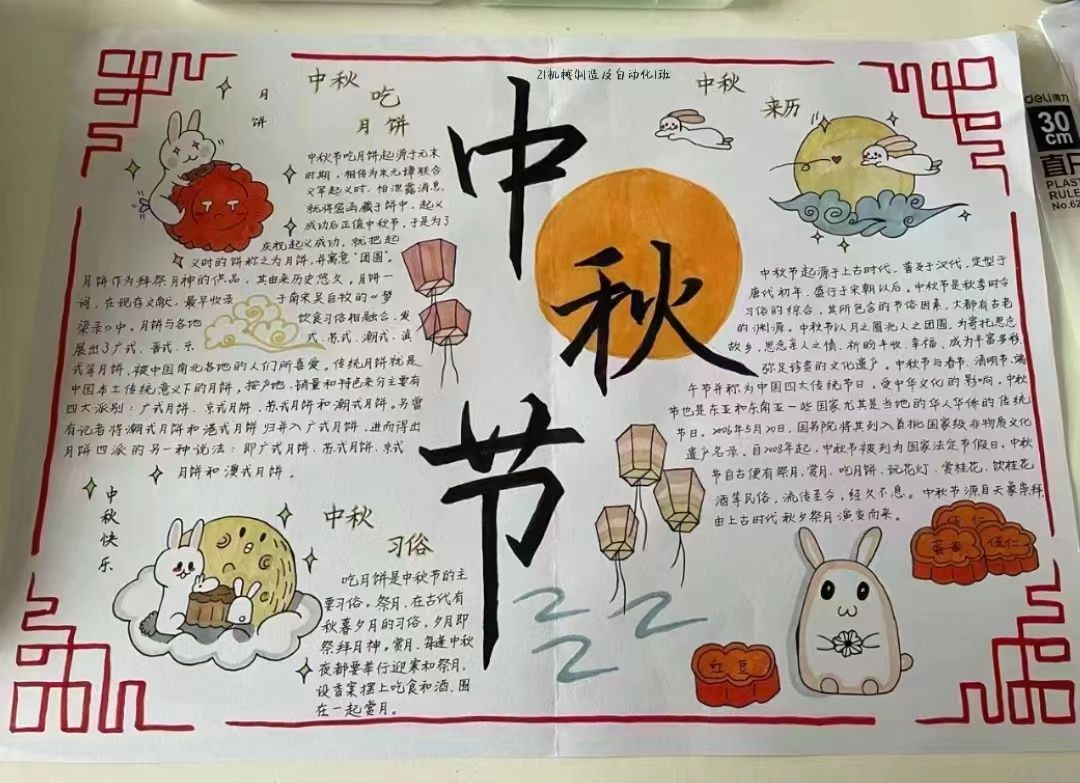 21机械制造及自动化1班
中
秋
节
中秋
吃
月饼
月
饼
中秋节吃月饼起源于元末
时期,相传为朱元璋联合
义军起义时,怕泄露消息,
就将密函藏于饼中,起义
成功后正值中秋节,于是为了
庆祝起义成功,就把起
义时的饼称之为月饼,并寓意“团圆”。
月饼作为拜祭月神的供品,其由来历史悠久,月饼一
词,在现存文献,最早收录于南宋吴自牧的《梦
梁录》中。月饼与各地饮食习俗相融合,发
展出了广式、晋式、京式、苏式、潮式、滇
式等月饼,被中国南北各地的人们所喜爱。传统月饼就是
中国本土传统意义下的月饼,按产地,销量和特色来分主要有
四大派别:广式月饼、京式月饼、苏式月饼和潮式月饼。另曾
有记者将潮式月饼和港式月饼归并入广式月饼,进而得出
月饼四派的另一种说法:即广式月饼、苏式月饼、京式
月饼和滇式月饼。
中
秋
快
乐
中秋
习俗
吃月饼是中秋节的主
要习俗,祭月,在古代有
秋暮夕月的习俗,夕月即
祭拜月神。赏月,每逢中秋
夜都要举行迎寒和祭月,
设香案摆上吃食和酒,围
在一起赏月。
中秋
来历
中秋节起源于上古时代,普及于汉代,定型于
唐代初年,盛行于宋朝以后。中秋节是秋季时令
习俗的综合,其所包含的节俗因素,大都有古老
的渊源。中秋节以月之圆兆人之团圆,为寄托思念
故乡,思念亲人之情,祈盼丰收、幸福,成为丰富多彩,
弥足珍贵的文化遗产。中秋节与春节、清明节、端
午节并称为中国四大传统节日。受中华文化的影响,中秋
节也是东亚和东南亚一些国家尤其是当地的华人华侨的传统
节日。2006年5月20日,国务院将其列入首批国家级非物质文化
遗产名录。自2008年起,中秋节被列为国家法定节假日。中秋
节自古便有祭月、赏月、吃月饼、玩花灯、赏桂花、饮桂花
酒等民俗,流传至今,经久不息。中秋节源自天象崇拜,
由上古时代秋夕祭月演变而来。
伍仁
红豆
deli得力
30
cm
直尺
PLAST
RULER
No.62